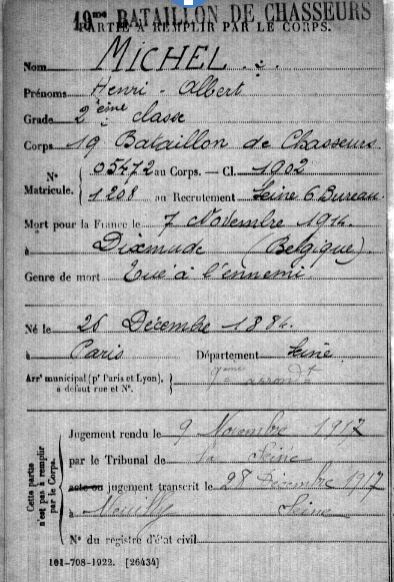 19me BATAILLON DE CHASSEURS
PARTIE À REMPLIR PAR LE CORPS.
Nom MICHEL
Prénoms Henri - Albert
Grade 2ème classe
Corps 19 Bataillon de Chasseurs
N° Matricule. { 05472 au Corps. — Cl. 1902
1208 au Recrutement Seine 6 Bureau
Mort pour la France le 7 Novembre 1914
à Dixmude (Belgique)
Genre de mort Tué à l'ennemi
Né le 26 Décembre 1884.
à Paris Département Seine
Arrt municipal (pr Paris et Lyon), à défaut rue et N°. } 9ème arrondt
Cette partie n'est pas à remplir par le Corps.
Jugement rendu le 9 Novembre 1917
par le Tribunal de la Seine
acte ou jugement transcrit le 28 Décembre 1917
à Neuilly Seine
N° du registre d'état civil
101-708-1922. [26434]